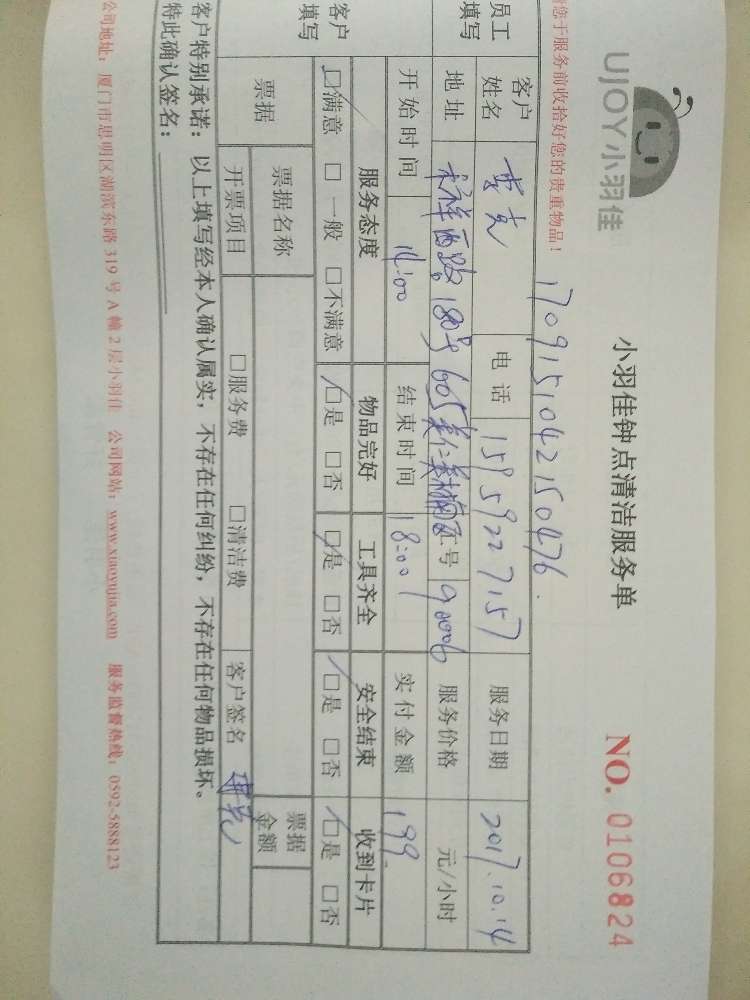 UJOY小羽佳
小羽佳钟点清洁服务单
NO. 0106824
您于服务前收拾好您的贵重物品！
1709151042150476.
员工填写 客户姓名 电话 15959227157 服务日期 2017.10.14
地址 祥西路180号605 工号 90006 服务价格 元/小时
开始时间 14:00 结束时间 18:00 实付金额 199
客户填写 服务态度 物品完好 工具齐全 安全结束 收到卡片
☑满意 □一般 □不满意 ☑是 □否 ☑是 □否 ☑是 □否 ☑是 □否
票据 票据名称 票据金额
开票项目 □服务费 □清洁费 客户签名
客户特别承诺：以上填写经本人确认属实，不存在任何纠纷，不存在任何物品损坏。
特此确认签名：
公司地址：厦门市思明区湖滨东路319号A幢2层小羽佳 公司网站：www.xiaoyujia.com 服务监督热线：0592-5888123